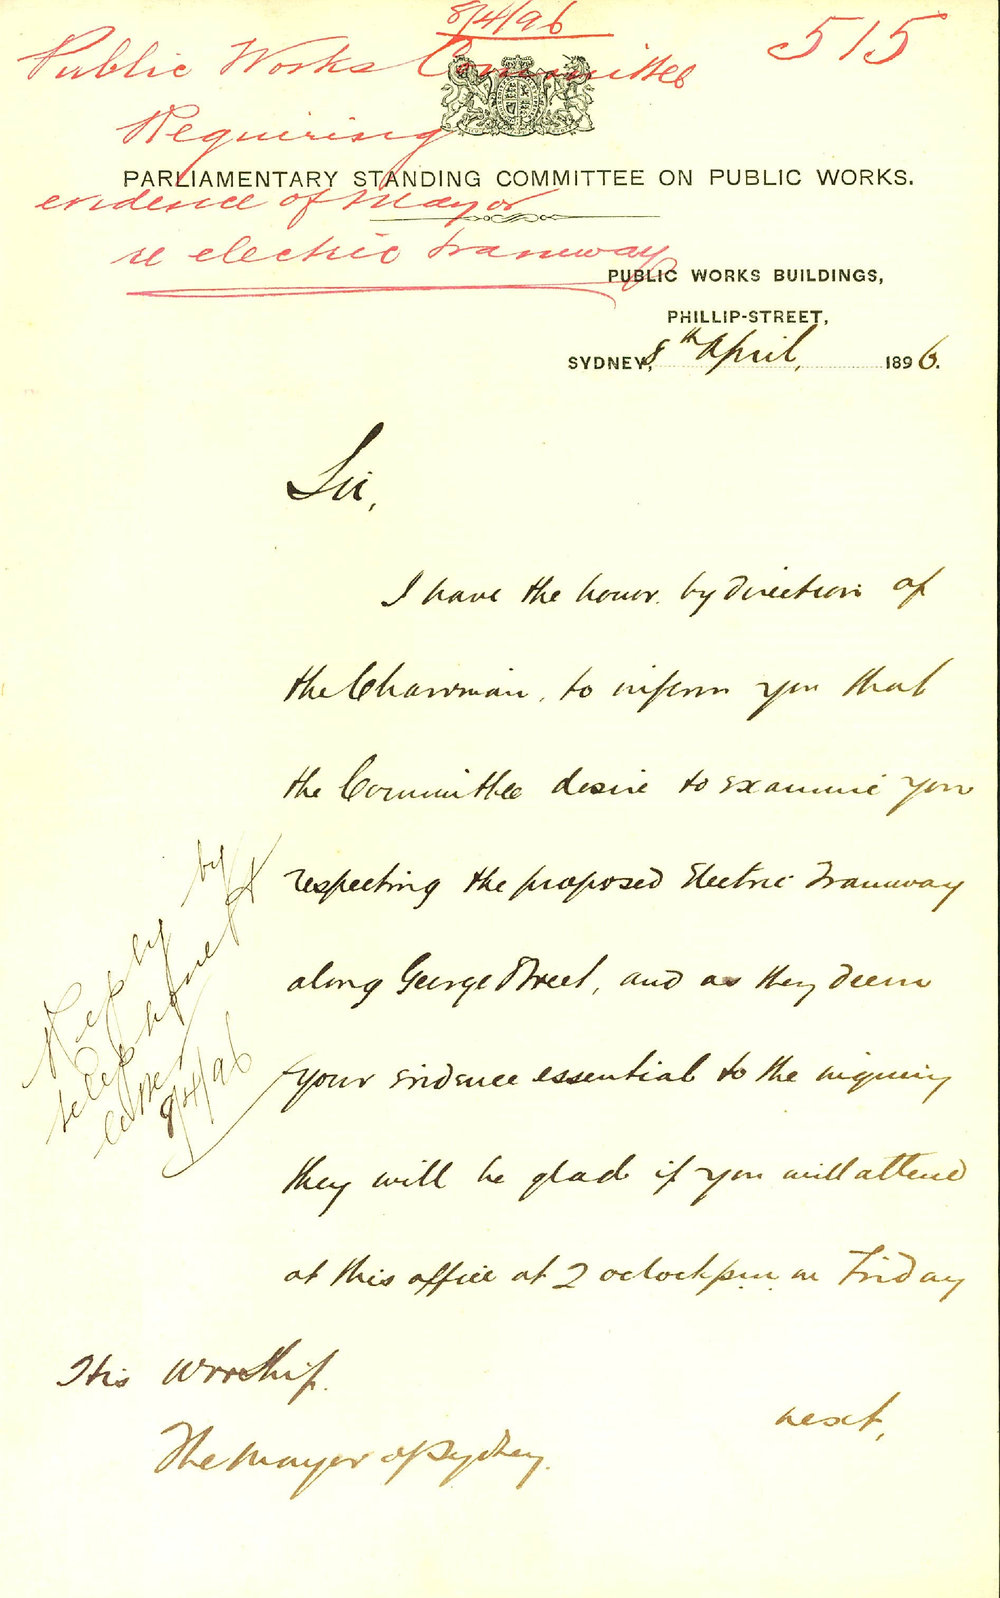 8/4/96
515
Public Works Committee
Requiring
PARLIAMENTARY STANDING COMMITTEE ON PUBLIC WORKS.
evidence of Mayor
re electric tramway
PUBLIC WORKS BUILDINGS,
PHILLIP-STREET,
SYDNEY, 8th April, 1896.
Sir,
I have the honor by direction of
the Chairman, to inform you that
the Committee desire to examine you
respecting the proposed Electric Tramway
along George Street, and as they deem
your evidence essential to the inquiry
they will be glad if you will attend
at this office at 2 oclock p.m. on Friday
next,
His Worship.
The Mayor of Sydney.
Reply by
telephone
8/4/96